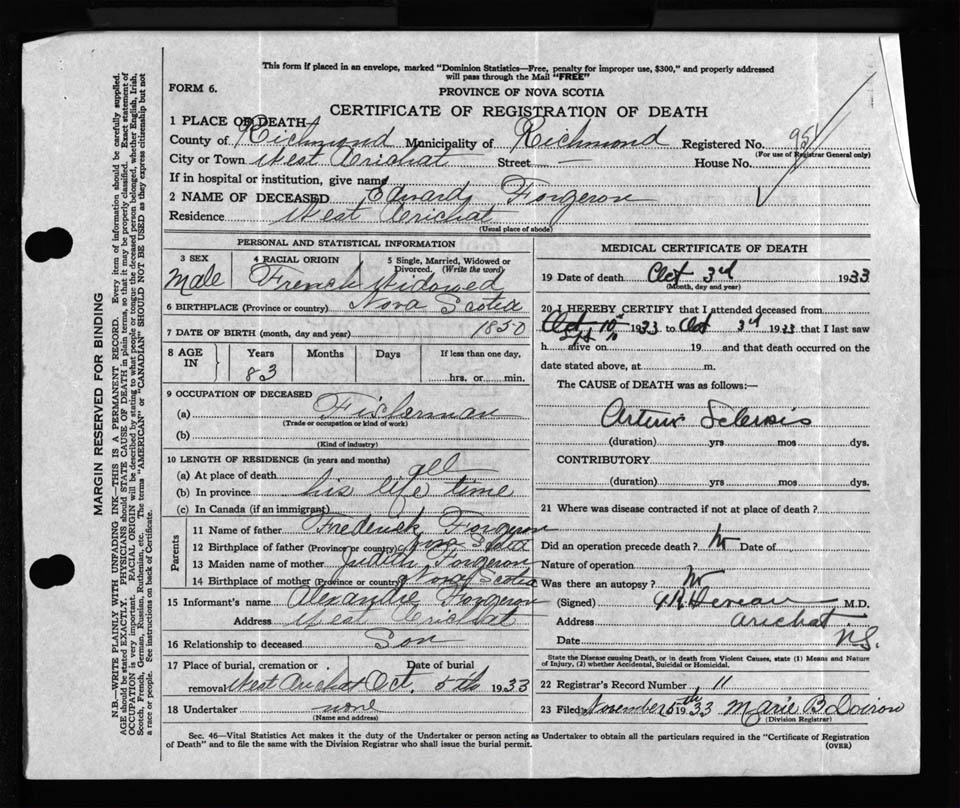 This form if placed in an envelope, marked "Dominion Statistics—Free, penalty for improper use, $300," and properly addressed
will pass through the Mail "FREE"
FORM 6.
PROVINCE OF NOVA SCOTIA
CERTIFICATE OF REGISTRATION OF DEATH
1 PLACE OF DEATH
County of Richmond Municipality of Richmond Registered No.
(For use of Registrar General only)
City or Town West Arichat Street — House No.
If in hospital or institution, give name
2 NAME OF DECEASED Edward Forgeron
Residence West Arichat
(Usual place of abode)
PERSONAL AND STATISTICAL INFORMATION
3 SEX 4 RACIAL ORIGIN 5 Single, Married, Widowed or
Divorced. (Write the word)
Male French Widowed
6 BIRTHPLACE (Province or country) Nova Scotia
7 DATE OF BIRTH (month, day and year) 1850
8 AGE IN Years Months Days If less than one day,
83 hrs. or min.
9 OCCUPATION OF DECEASED
(a) Fisherman
(Trade or occupation or kind of work)
(b)
(Kind of industry)
10 LENGTH OF RESIDENCE (in years and months)
(a) At place of death all
(b) In province his life time
(c) In Canada (if an immigrant)
Parents
11 Name of father Frederick Forgeron
12 Birthplace of father (Province or country) Nova Scotia
13 Maiden name of mother Judith Forgeron
14 Birthplace of mother (Province or country) Nova Scotia
15 Informant's name Alexandre Forgeron
Address West Arichat
16 Relationship to deceased Son
17 Place of burial, cremation or removal West Arichat Date of burial Oct. 5th 1933
18 Undertaker none
(Name and address)
MEDICAL CERTIFICATE OF DEATH
19 Date of death Oct 3rd 1933
(Month, day and year)
20 I HEREBY CERTIFY that I attended deceased from
Sept 10 1933 to Oct 3rd 1933 that I last saw
h alive on 19 and that death occurred on the
date stated above, at m.
The CAUSE of DEATH was as follows:—
Arterio Sclerosis
(duration) yrs mos dys.
CONTRIBUTORY
(duration) yrs mos dys.
21 Where was disease contracted if not at place of death?
Did an operation precede death? No Date of
Nature of operation
Was there an autopsy? No
(Signed) M.D.
Address Arichat
Date N.S.
State the Disease causing Death, or in death from Violent Causes, state (1) Means and Nature
of Injury, (2) whether Accidental, Suicidal or Homicidal.
22 Registrar's Record Number 11
23 Filed November 5th 1933 Marie B Doiron
(Division Registrar)
Sec. 46—Vital Statistics Act makes it the duty of the Undertaker or person acting as Undertaker to obtain all the particulars required in the "Certificate of Registration
of Death" and to file the same with the Division Registrar who shall issue the burial permit.
(OVER)
MARGIN RESERVED FOR BINDING
N.B.—WRITE PLAINLY WITH UNFADING INK—THIS IS A PERMANENT RECORD. Every item of information should be carefully supplied.
AGE should be stated EXACTLY. PHYSICIANS should STATE CAUSE OF DEATH in plain terms, so that it may be properly classified. Exact statement of
OCCUPATION is very important. RACIAL ORIGIN will be described by stating to what people or tongue the deceased person belonged, whether English, Irish,
Scotch, French, German, Russian, Ruthenian, etc. The terms "AMERICAN" or "CANADIAN" SHOULD NOT BE USED as they express citizenship but not
a race or people. See instructions on back of Certificate.